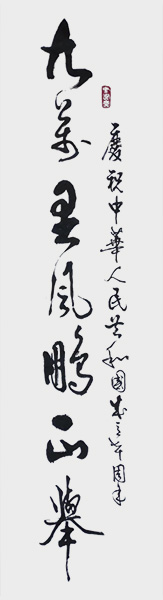 慶祝中華人民共和國成立十周年
九萬里風鵬正舉